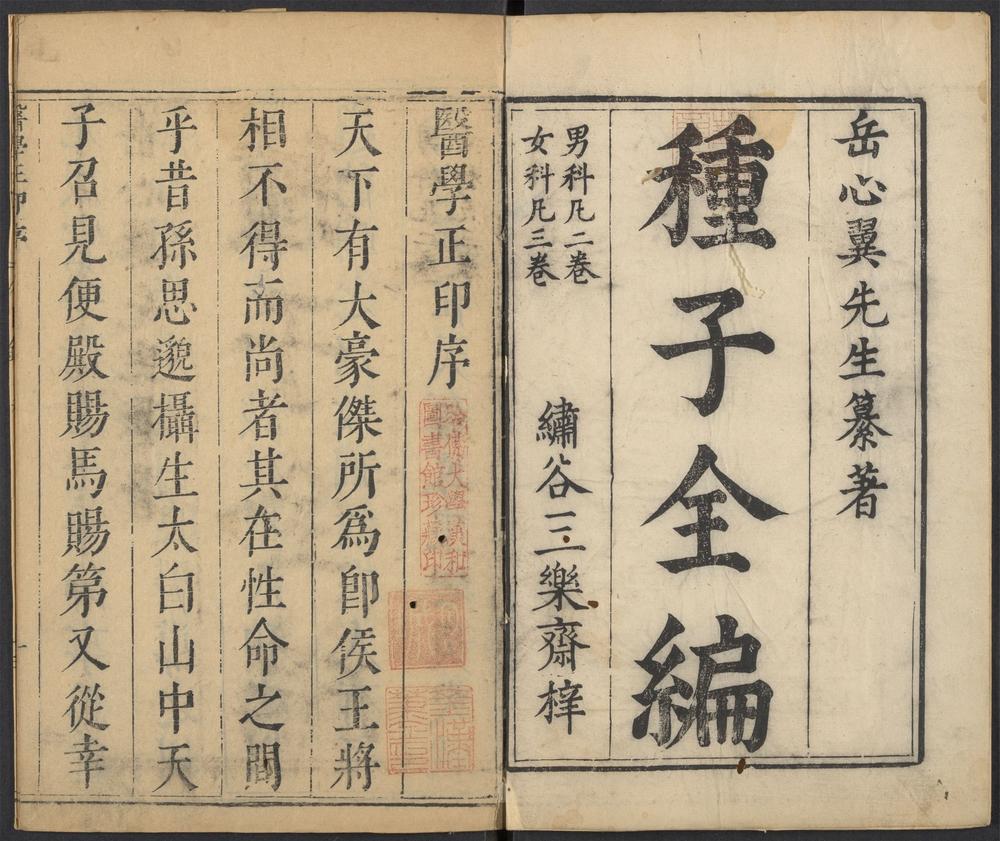 岳心翼先生纂著
種子全編
男科凡二卷
女科凡三卷
繡谷三樂齋梓
醫學正印序
哈佛大學漢和
圖書館珍藏印
天下有大豪傑所爲卽侯王將
相不得而尚者其在性命之間
乎昔孫思邈攝生太白山中天
子召見便殿賜馬賜第又從幸